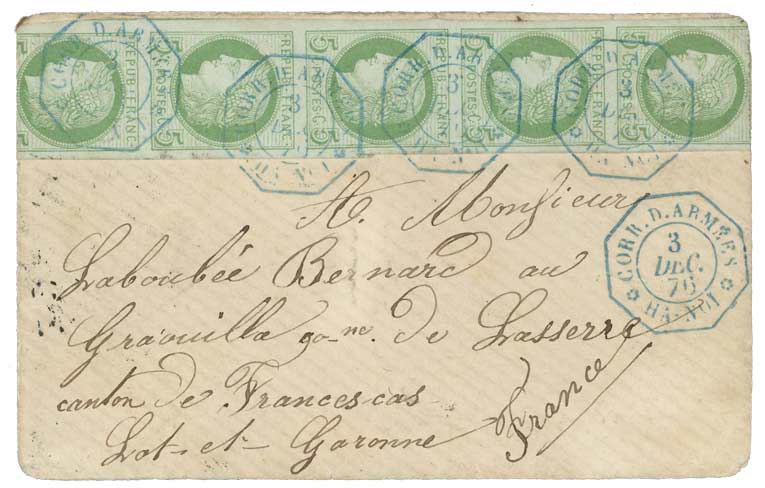 5 REPUB. FRANC. POSTES 5
5 REPUB. FRANC. POSTES 5
5 REPUB. FRANC. POSTES 5
5 REPUB. FRANC. POSTES 5
CORR. D. ARMÉES
3
HA-NOI
CORR. D. ARMÉES
3
DEC.
76
HA-NOI
A. Monsieur
Laboubée Bernard au
de Lasserre
canton de Francescas
Lot-et-Garonne
France